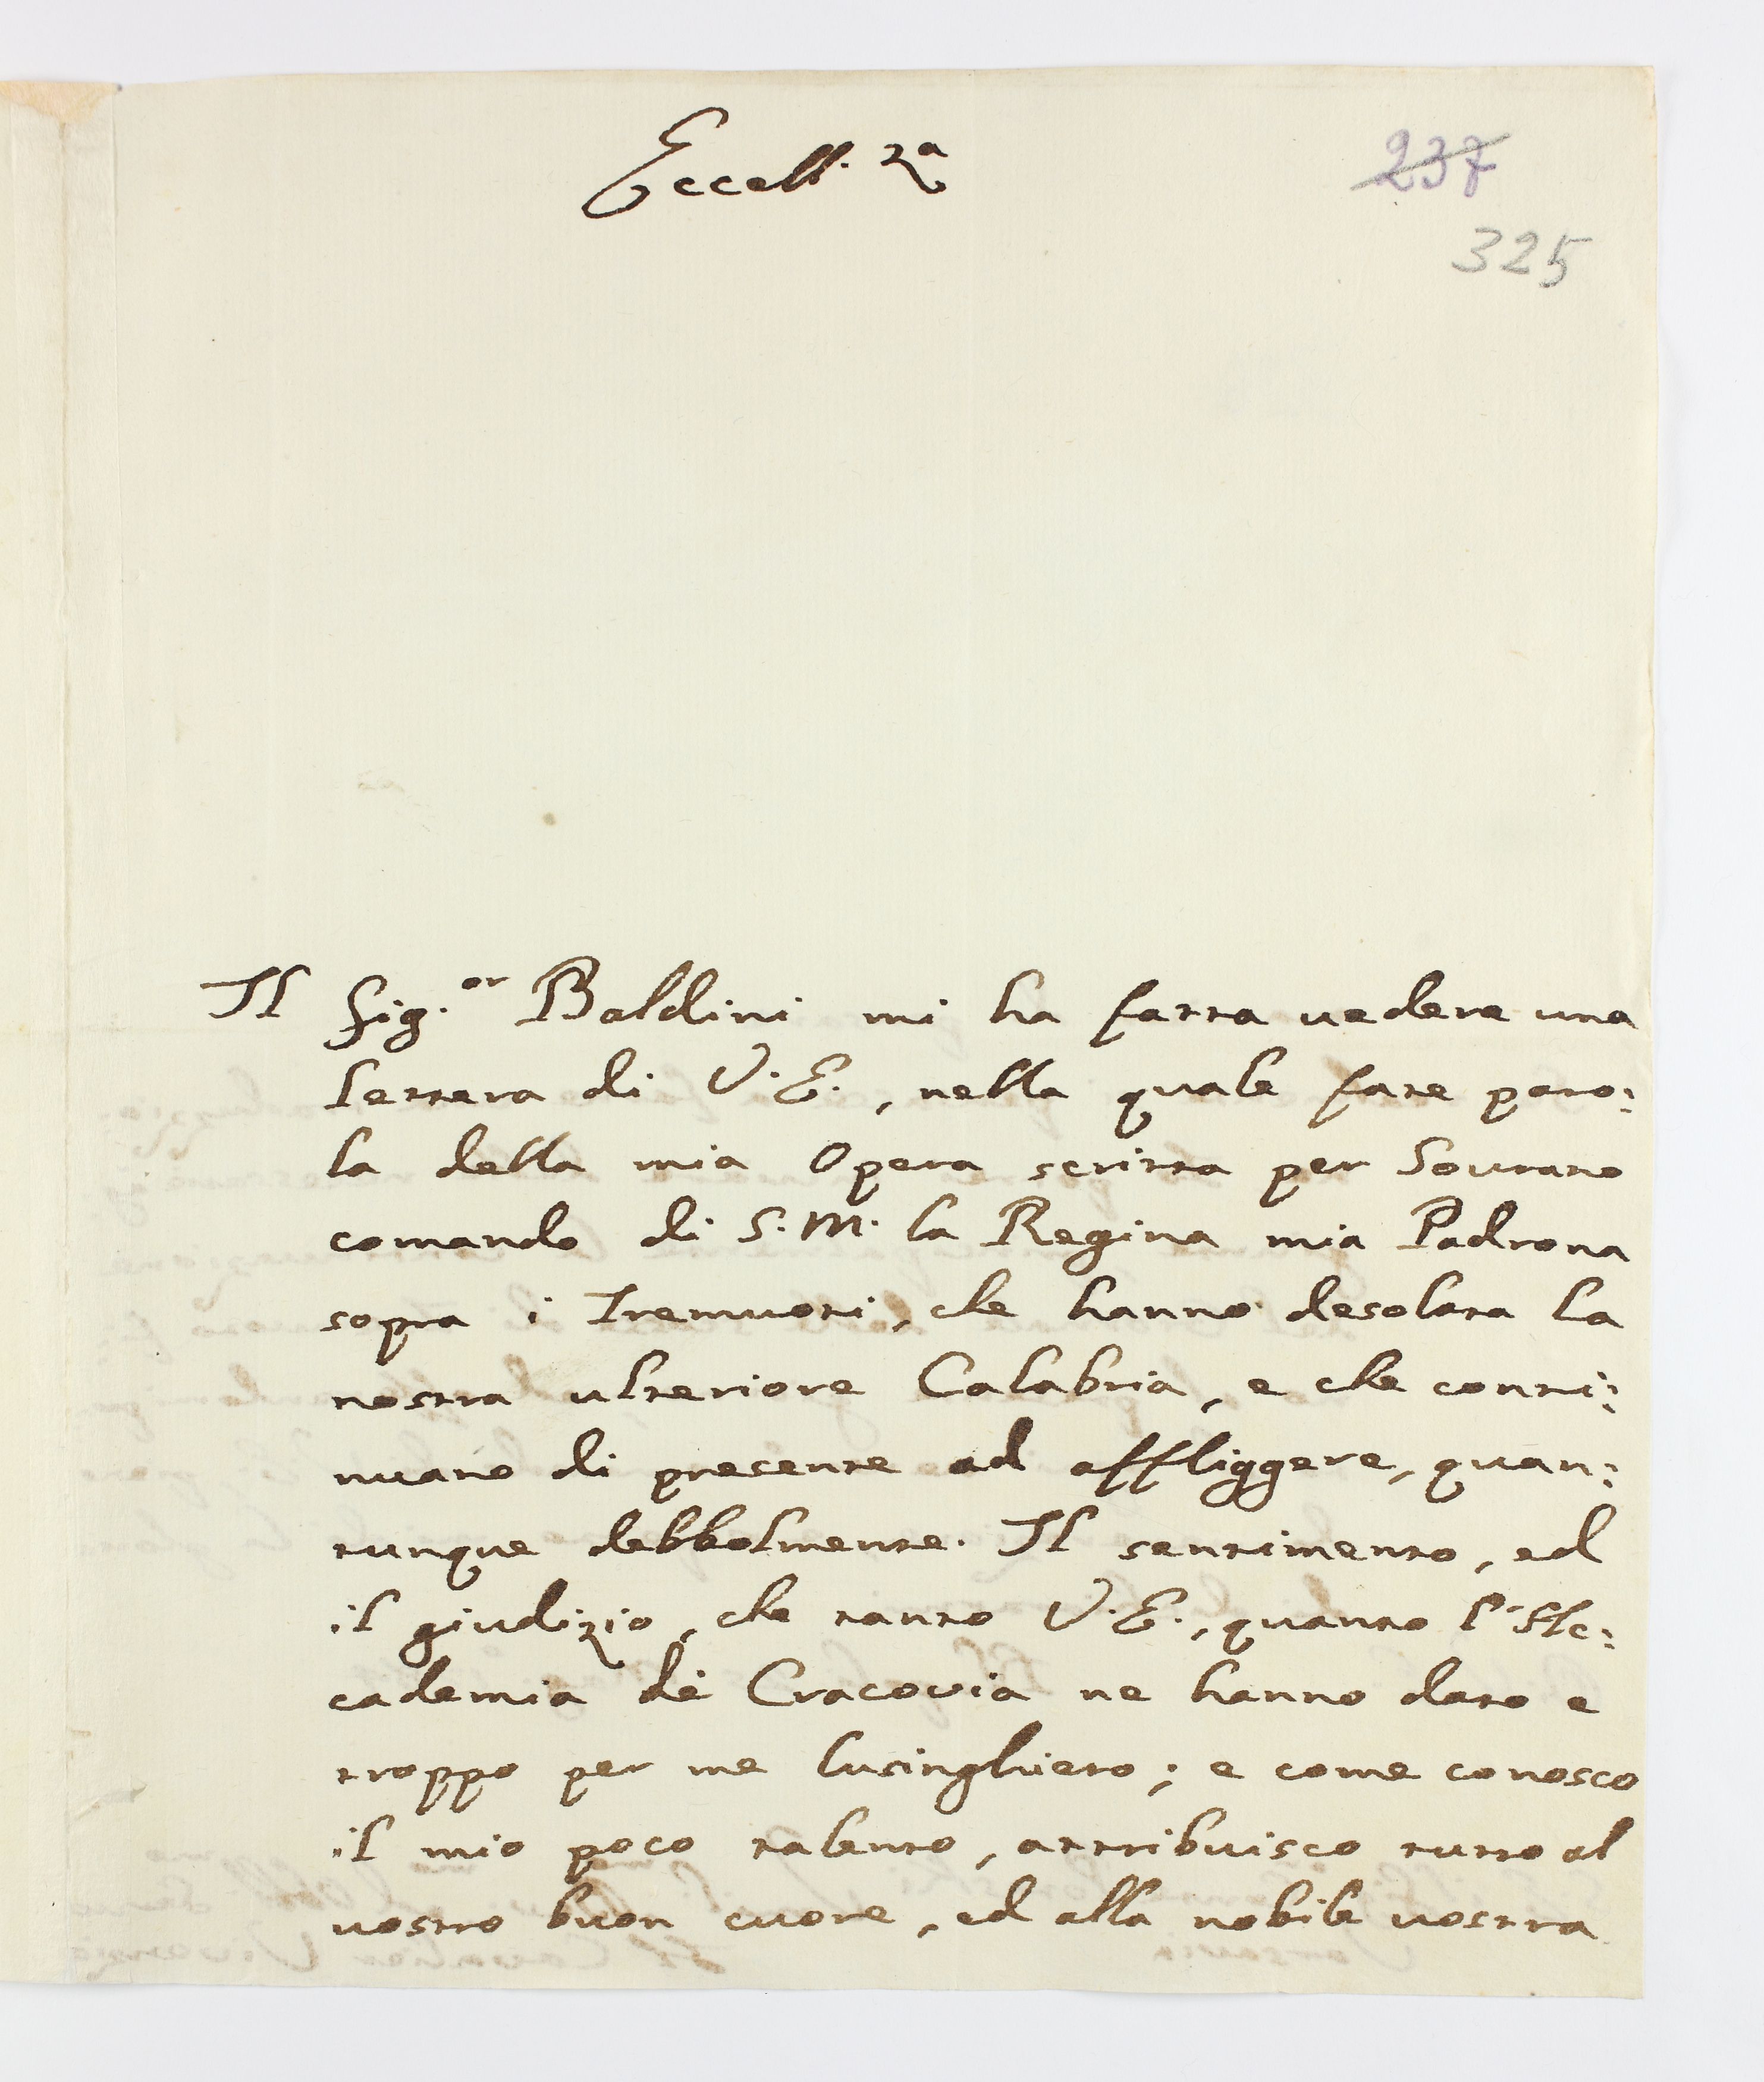 Eccell. za
237
325
Il Sig.or Baldini mi ha fatta vedere una
lettera di V. E., nella quale fate paro:
la della mia Opera scritta per Sovrano
comando di S. M. la Regina mia Padrona
sopra i Tremuoti, che hanno desolata la
nostra ulteriore Calabria, e che conti:
nuano di presente ad affliggere, quan:
tunque debbolmente. Il sentimento, ed
il giudizio, che tanto V. E., quanto l'Ac:
cademia dè Cracovia ne hanno dato e
troppo per me lusinghiero; e come conosco
il mio poco talento, attribuisco tutto al
vostro buon cuore, ed alla nobile vostra